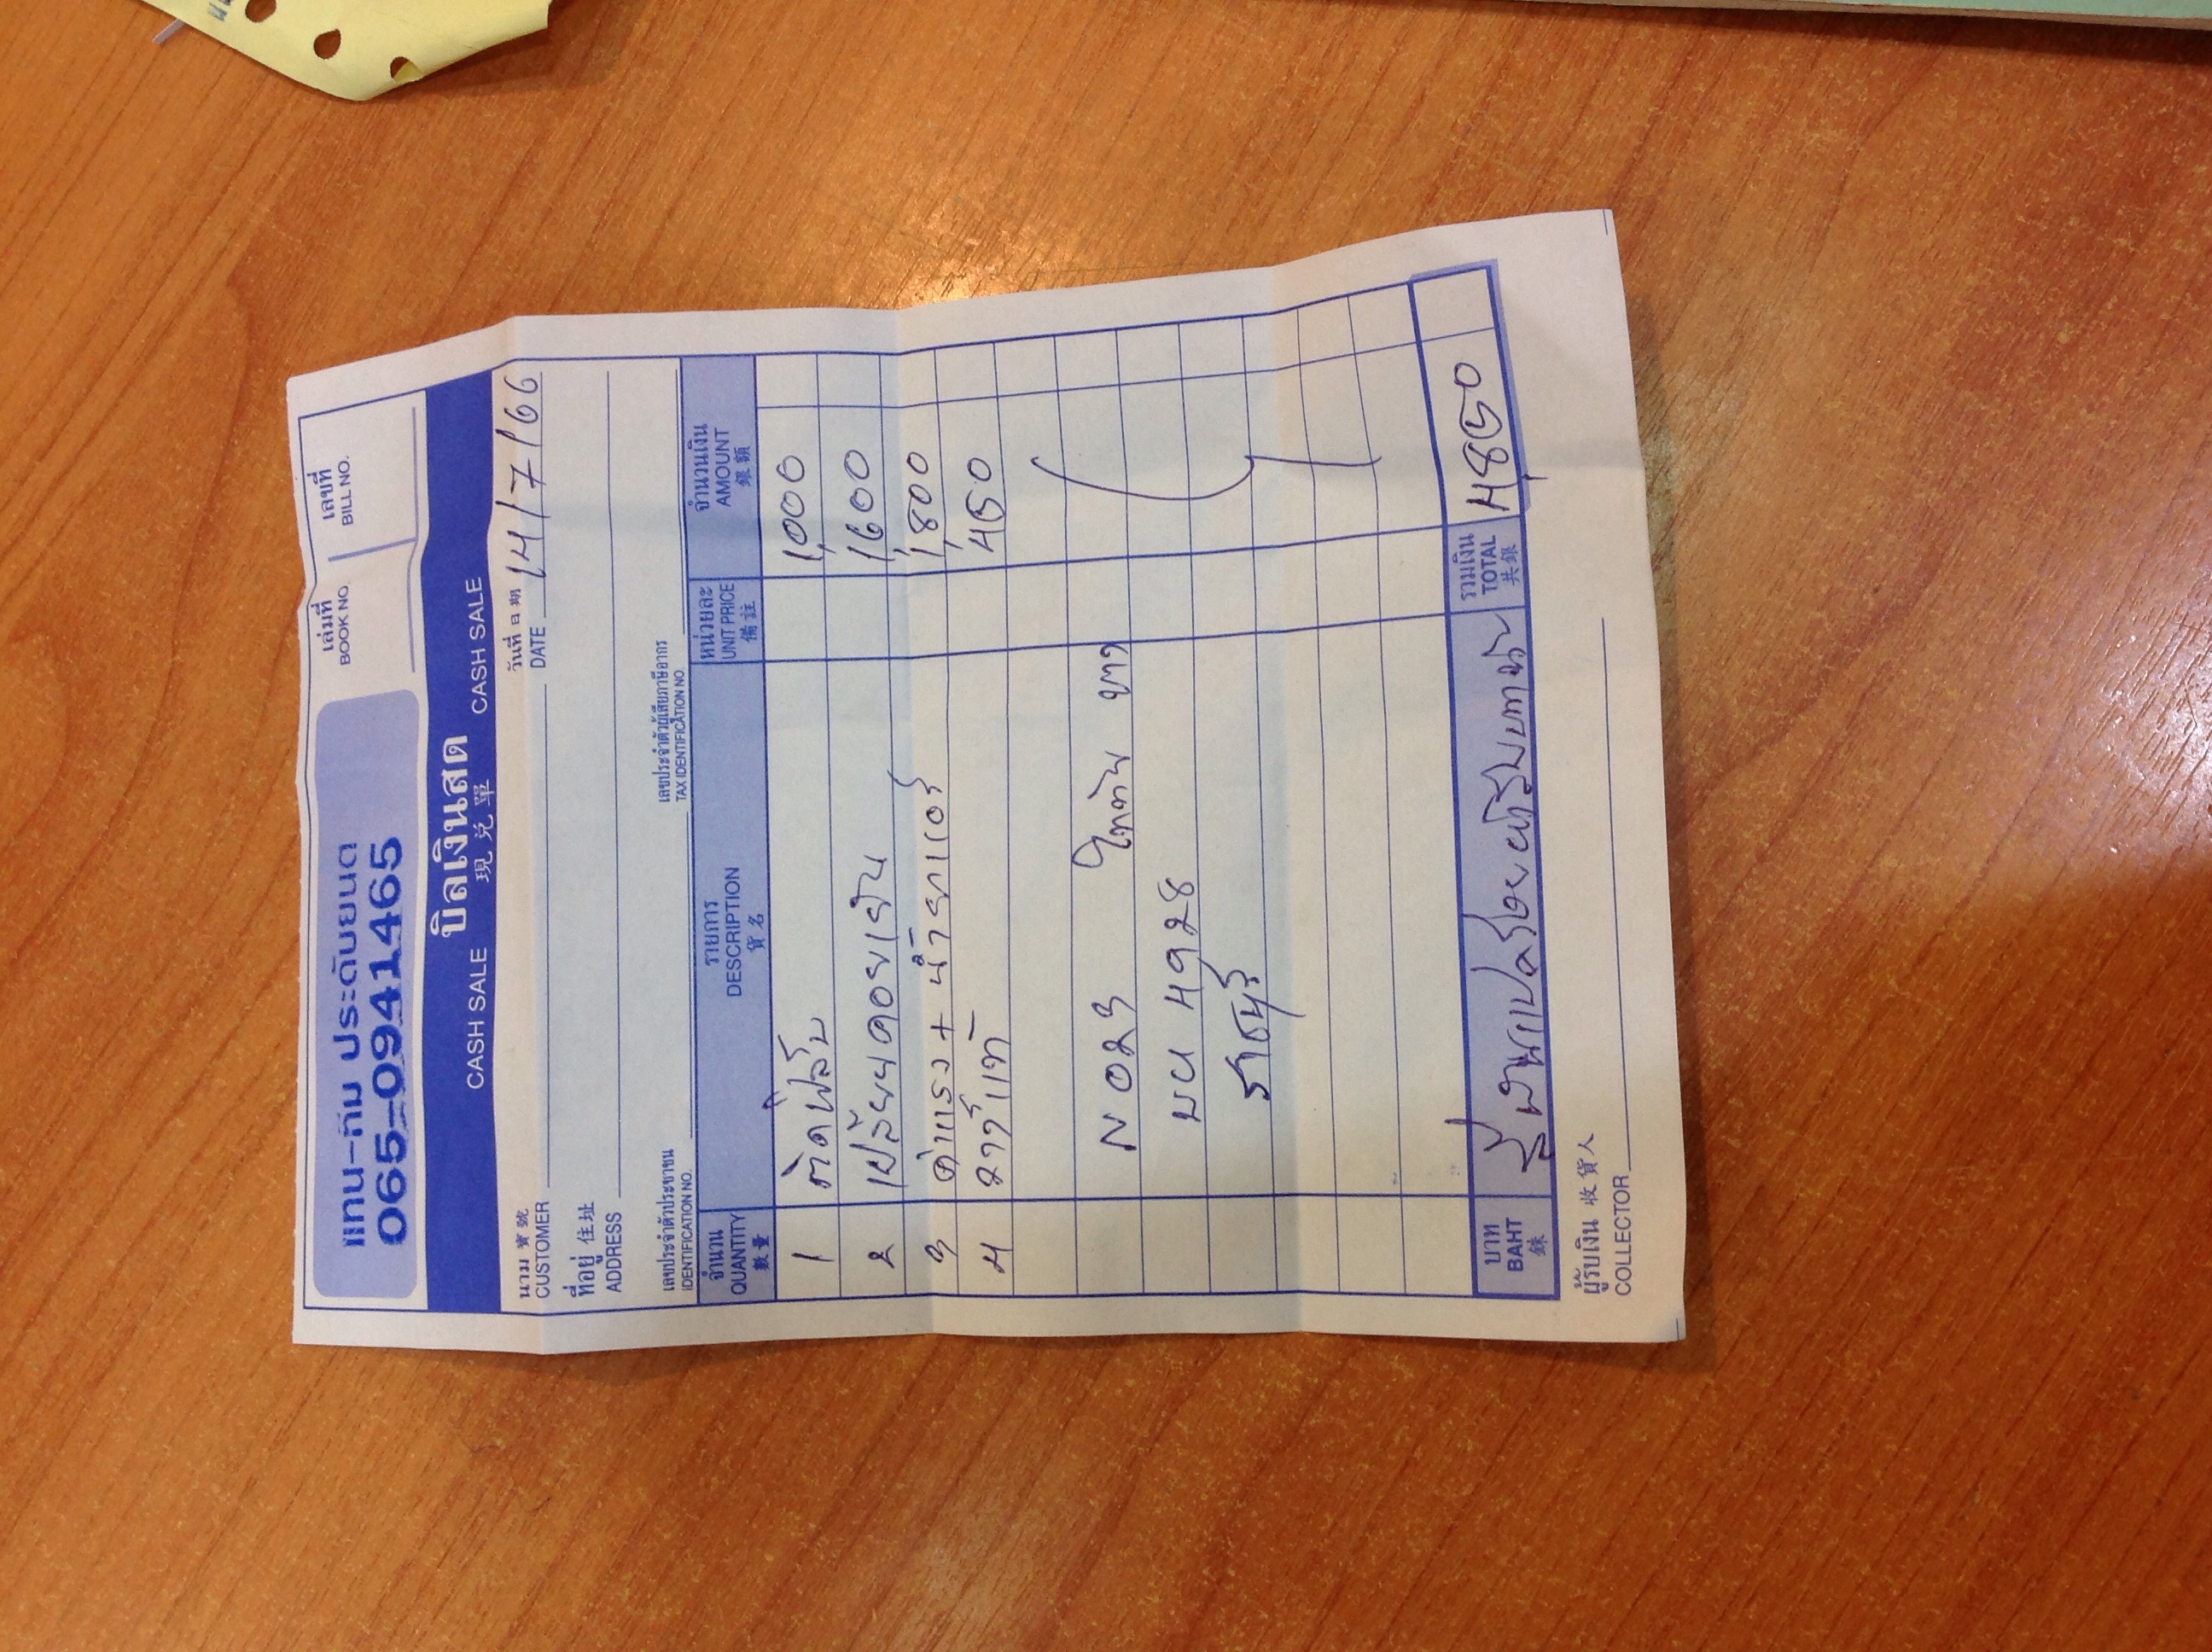 แทน-กิม ประดับยนต์
065-0941465
เล่มที่
BOOK NO.
เลขที่
BILL NO.
CASH SALE บิลเงินสด CASH SALE
現兌單
นาม 寶號
CUSTOMER
วันที่ 日期
DATE 14/7/66
ที่อยู่ 住址
ADDRESS
เลขประจำตัวประชาชน
IDENTIFICATION NO.
เลขประจำตัวผู้เสียภาษีอากร
TAX IDENTIFICATION NO.
จำนวน รายการ หน่วยละ จำนวนเงิน
QUANTITY DESCRIPTION UNIT PRICE AMOUNT
數量 貨名 備註 銀額
1 ติดฟิล์ม 1,000
2 1600
3 ค่าแรง + น้ำยาแอร์ 1,800
4 450
N 023
4928
ราชบุรี
บาท
BAHT
銖
สี่พันแปดร้อยห้าสิบบาทถ้วน
รวมเงิน
TOTAL
共銀
4,850
ผู้รับเงิน 收貨人
COLLECTOR